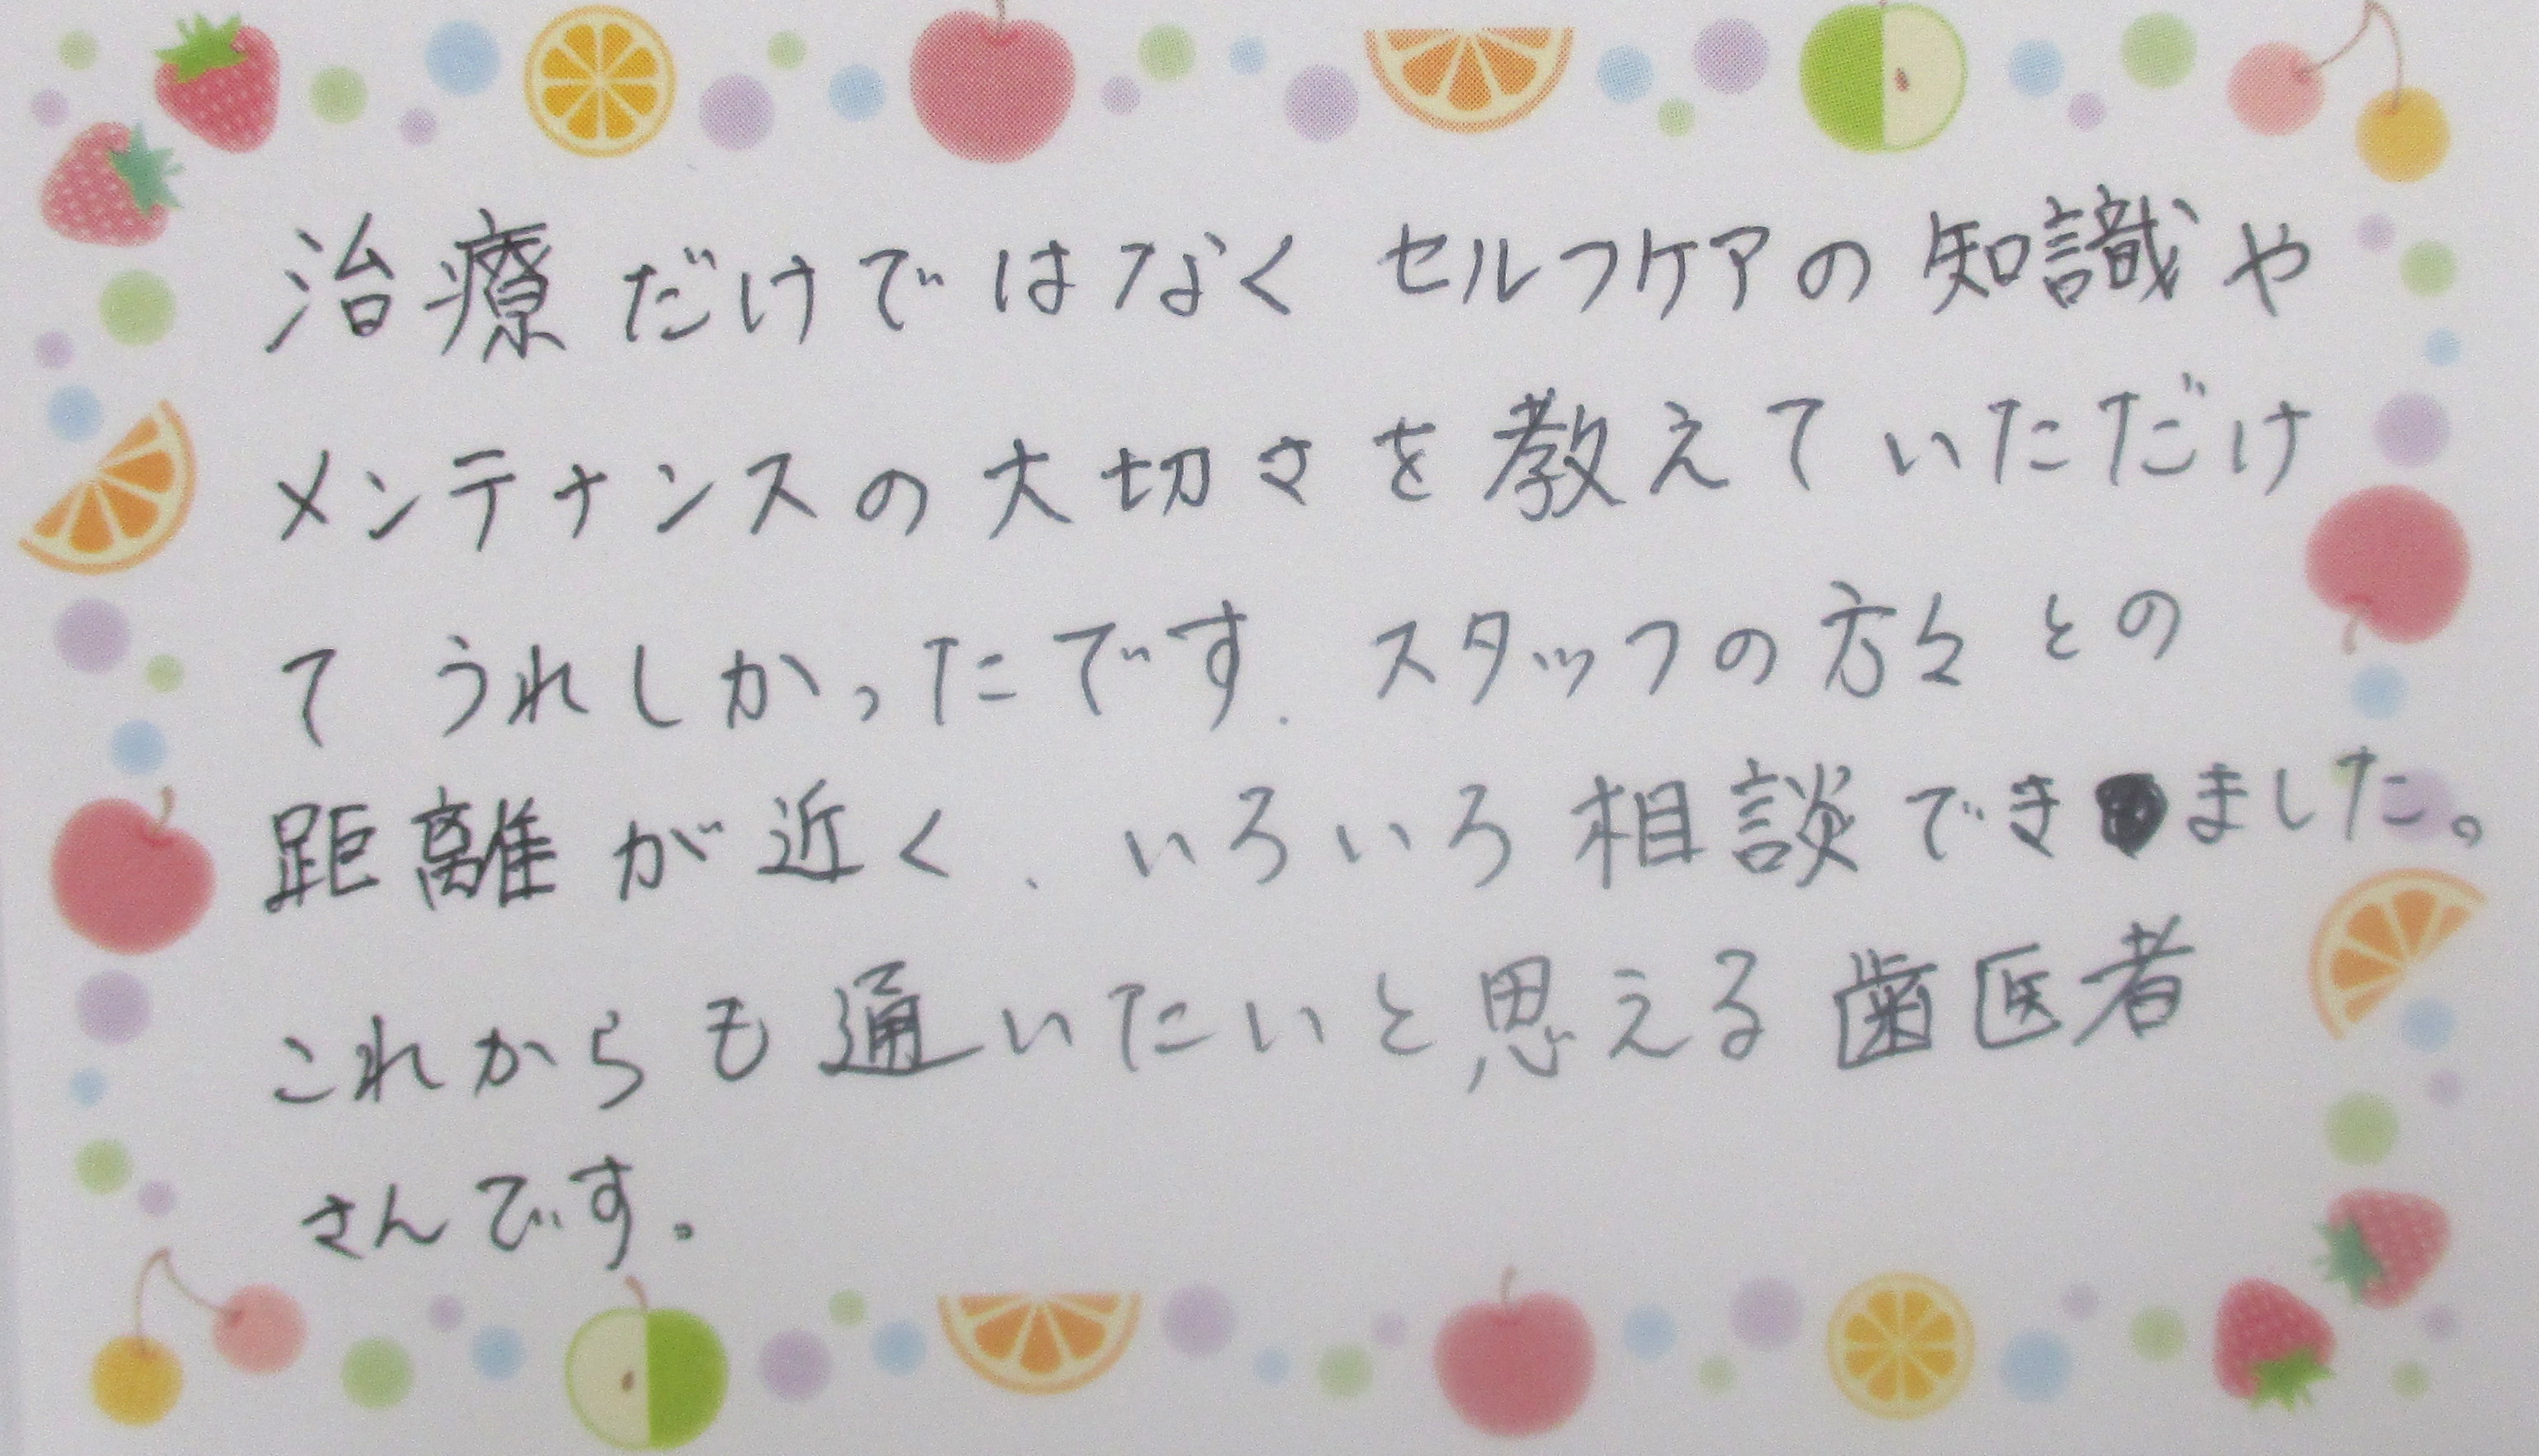 治療だけではなくセルフケアの知識や
メンテナンスの大切さを教えていただけ
てうれしかったです.スタッフの方々との
距離が近く、いろいろ相談できました。
これからも通いたいと思える歯医者
さんです。